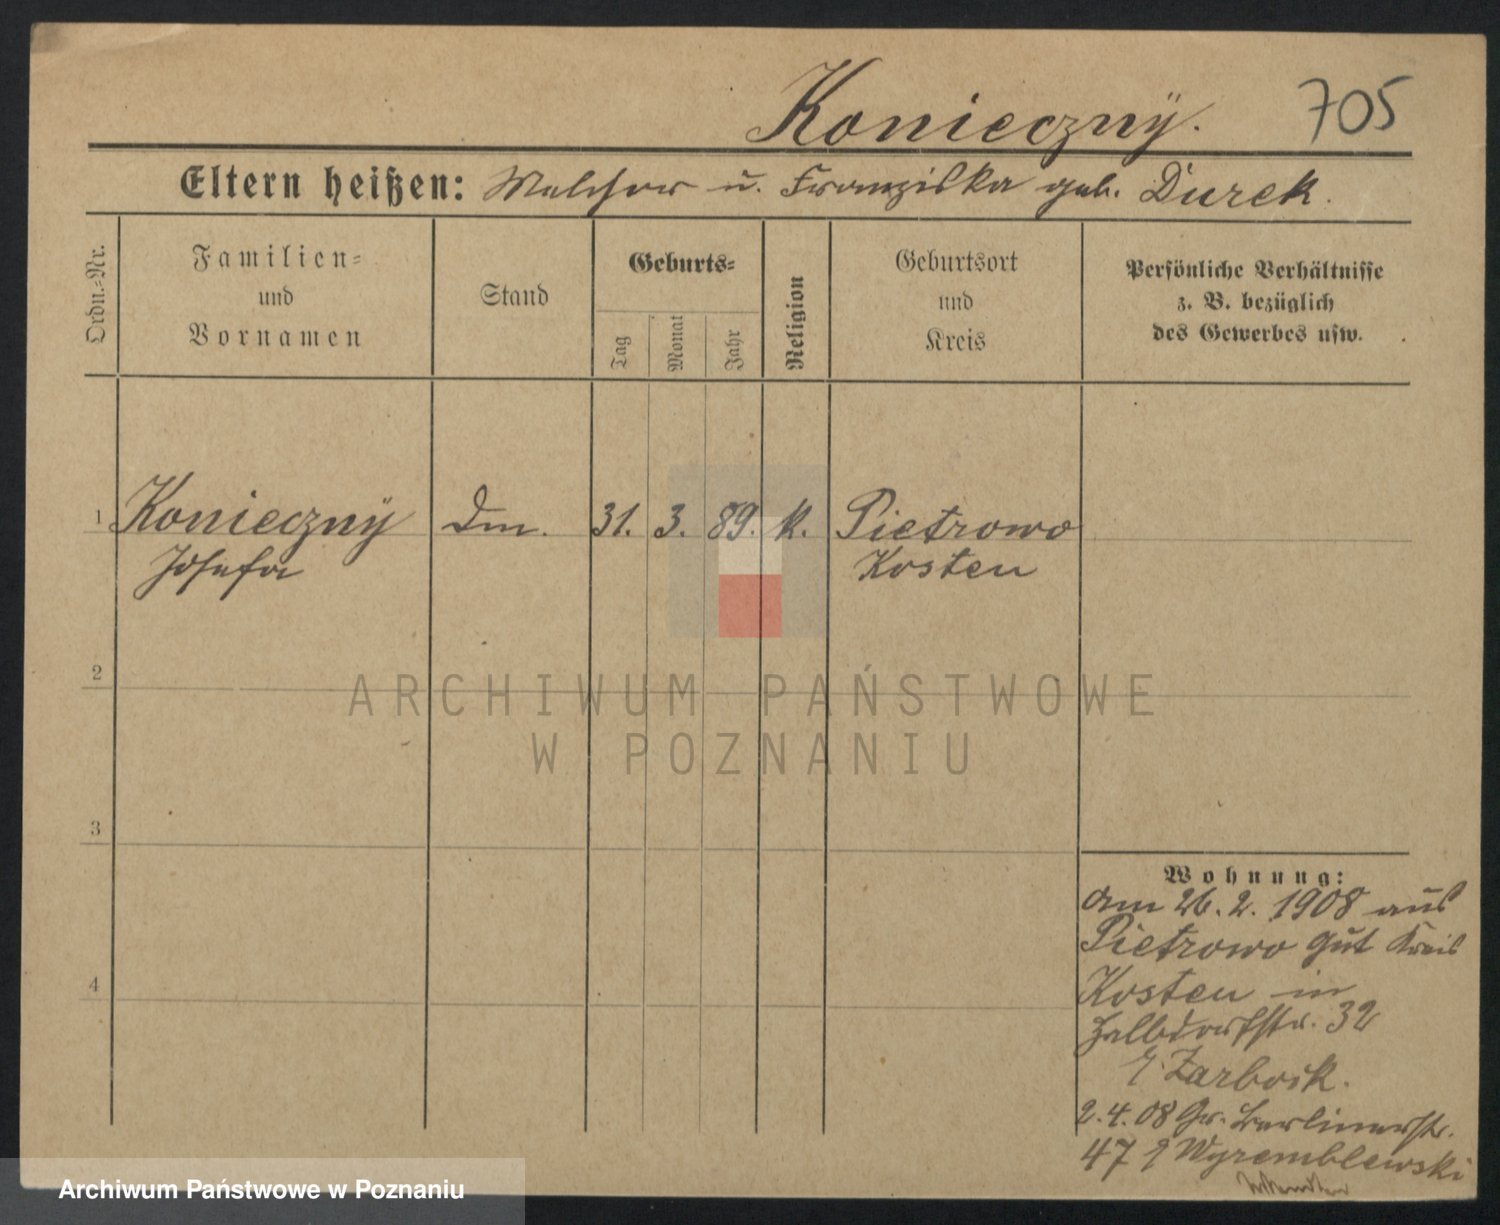 Konieczny. 705
Eltern heißen: Melchior u. Franziska geb. Durek.
Ordn.-Nr.
Familien-
und
Vornamen
Stand
Geburts-
Tag
Monat
Jahr
Religion
Geburtsort
und
Kreis
Persönliche Verhältnisse
z. B. bezüglich
des Gewerbes usw.
1 Konieczny Dm. 31. 3. 89. k. Pietrowo
Josefa Kosten
2
ARCHIWUM PAŃSTWOWE
W POZNANIU
3
4
Wohnung:
am 26. 2. 1908 aus
Pietrowo Gut Kreis
Kosten in
Halbdorfstr. 32
Zarbock.
2. 4. 08 Gr. Berlinerstr.
47 Wyremblewski
Archiwum Państwowe w Poznaniu